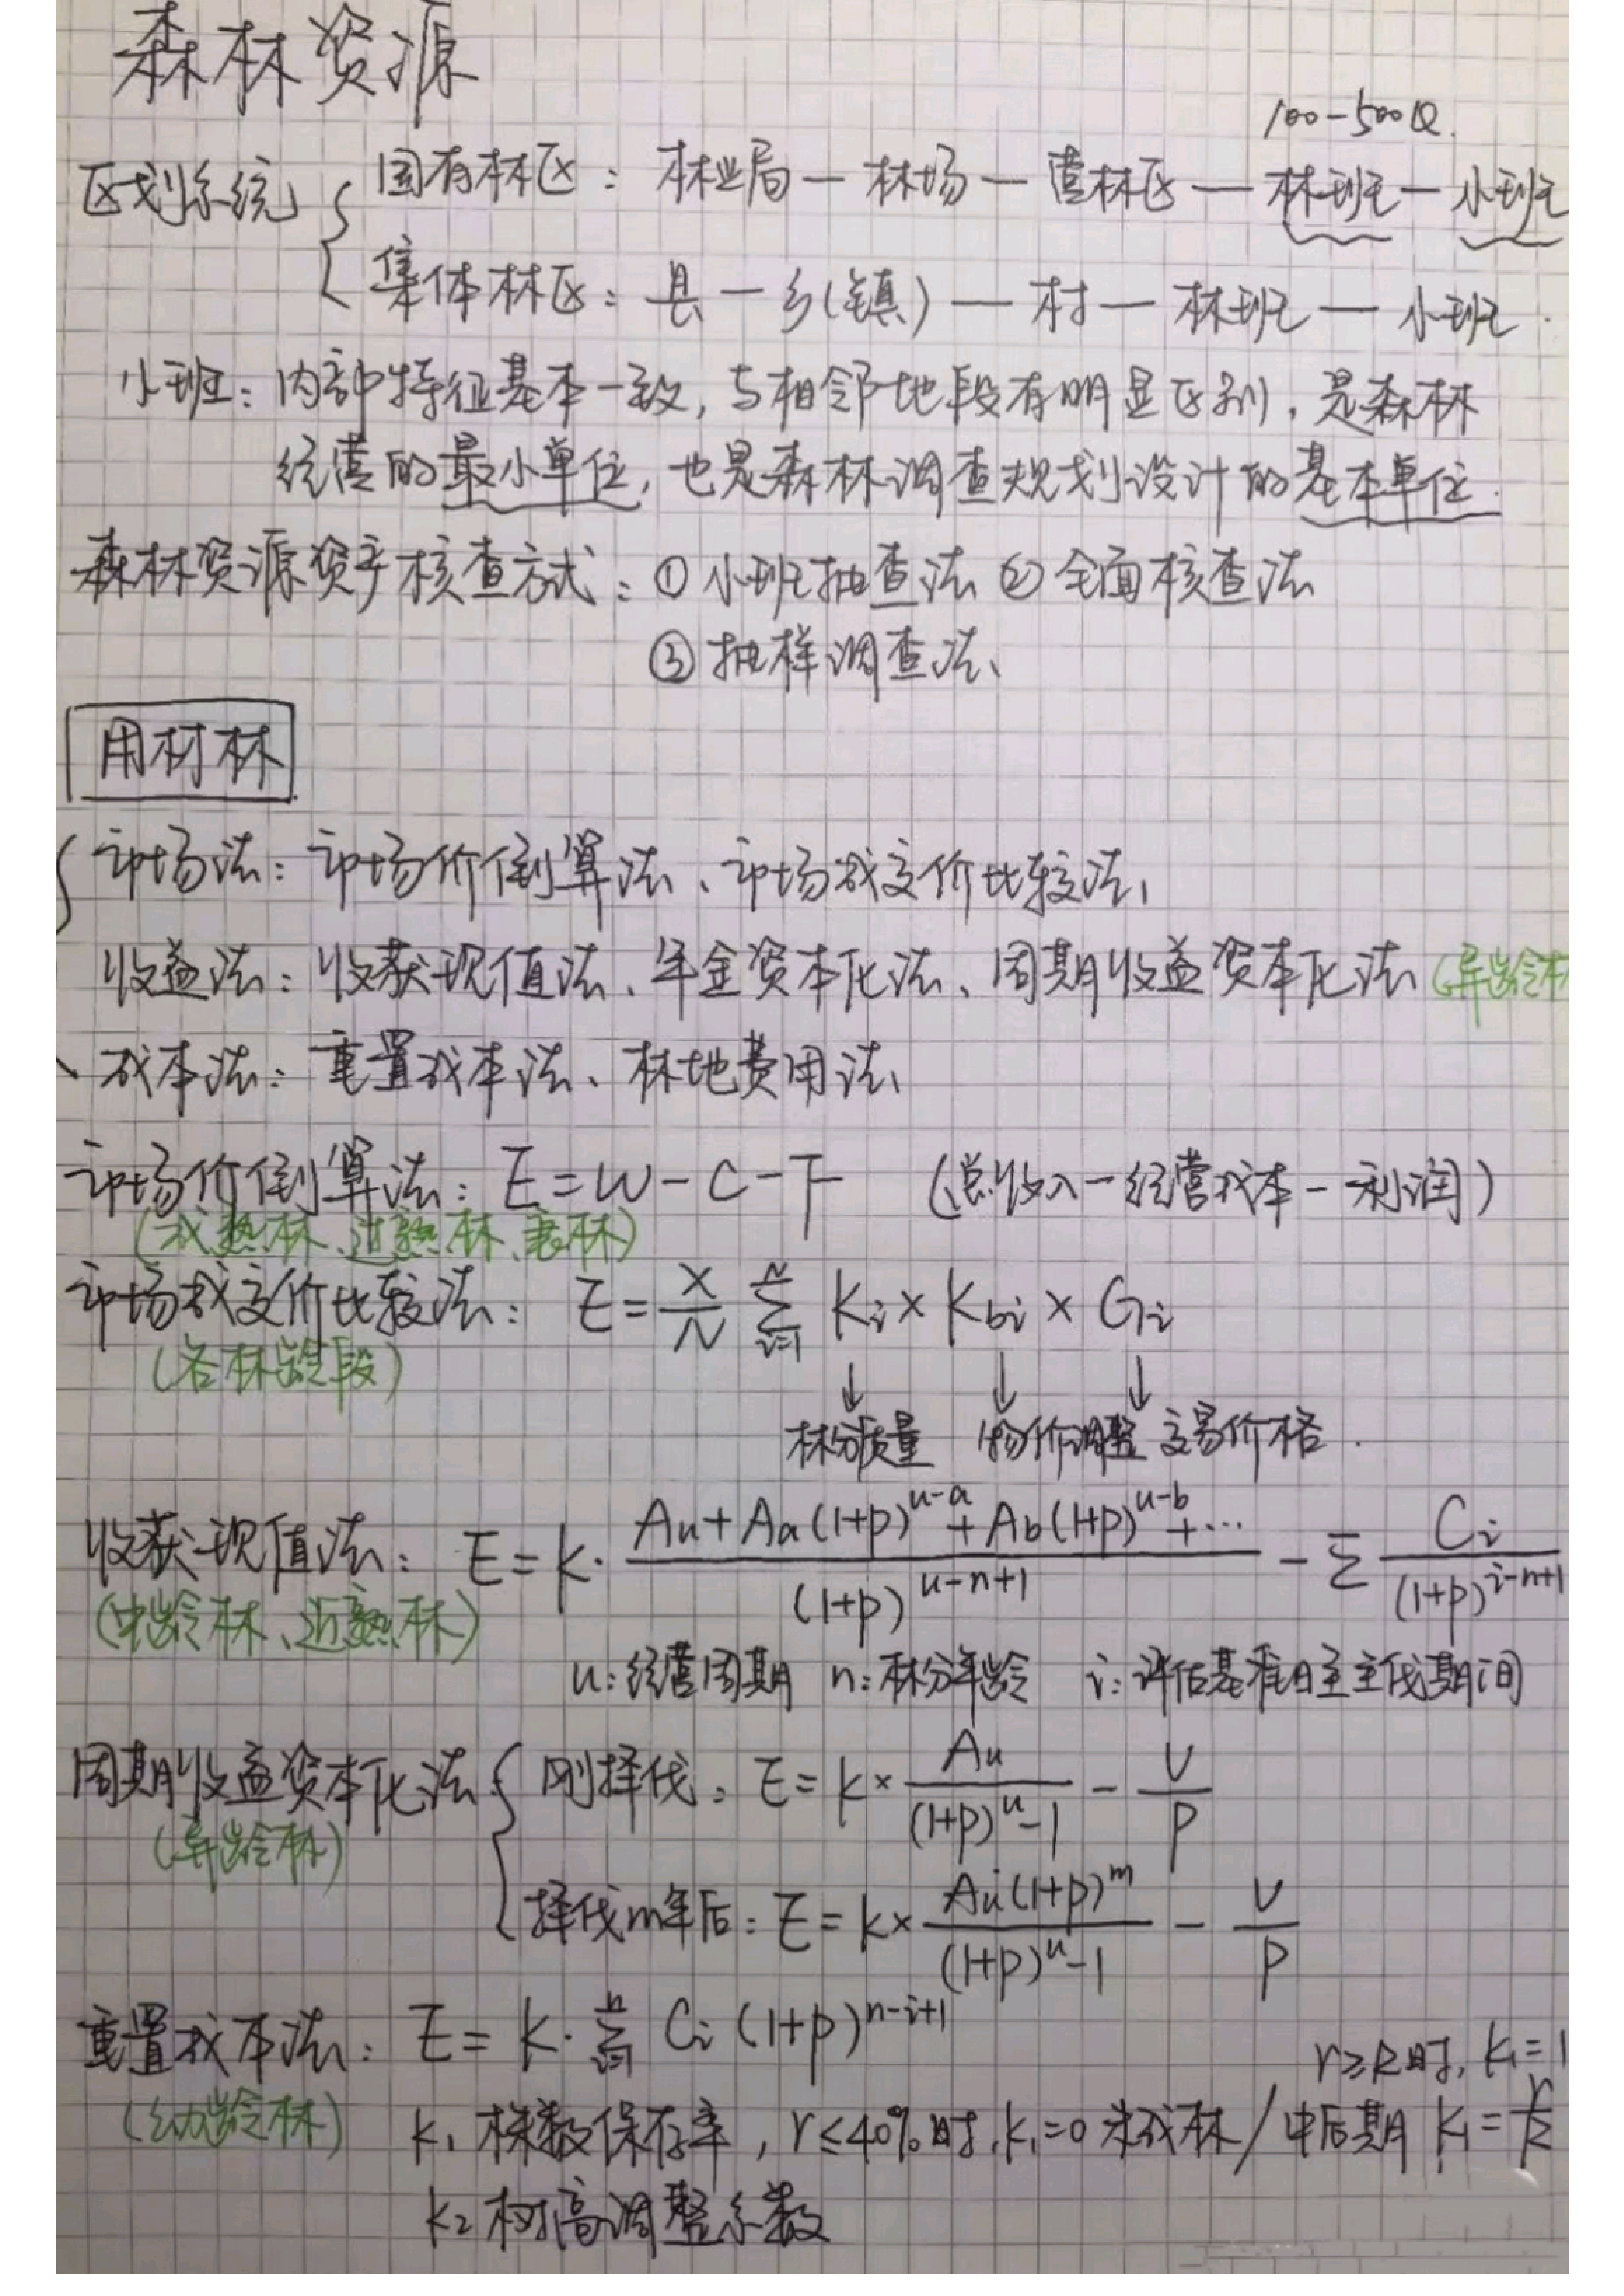 森林资源
100-500公.
区划系统 { 国有林区：林业局—林场—营林区—林班—小班
集体林区：县—乡(镇)—村—林班—小班.
小班：内部特征基本一致，与相邻地段有明显区别，是森林
经营的最小单位，也是森林调查规划设计的基本单位.
森林资源资产核查方式：① 小班抽查法 ② 全面核查法
③ 抽样调查法、
用材林
市场法：市场价倒算法、市场成交价比较法、
收益法：收获现值法、年金资本化法、周期收益资本化法 (异龄林
成本法：重置成本法、林地费用法、
市场价倒算法：E=W-C-F (总收入-经营成本-利润)
(成熟林、过熟林、衰林)
市场成交价比较法：E=X/N Σ(i=1→N) Ki×Kbi×Gi
(各林龄段)
↓ ↓ ↓
林分质量 物价调整 交易价格.
收获现值法：E=K·[Au+Aa(1+p)^(u-a)+Ab(1+p)^(u-b)+…]/(1+p)^(u-n+1) - Σ Ci/(1+p)^(i-n+1)
(中龄林、近熟林)
u：经营周期 n：林分年龄 i：评估基准日至主伐期间
周期收益资本化法 { 刚择伐：E=K×Au/[(1+p)^u-1] - V/P
(异龄林)
择伐m年后：E=K×Au(1+p)^m/[(1+p)^u-1] - V/P
重置成本法：E=K·Σ(i=1→n) Ci(1+p)^(n-i+1)
r≥R时，K1=1
(幼龄林) K1 株数保存率，r≤40%时，K1=0 未成林/中后期 K1=r/R
K2 树高调整系数